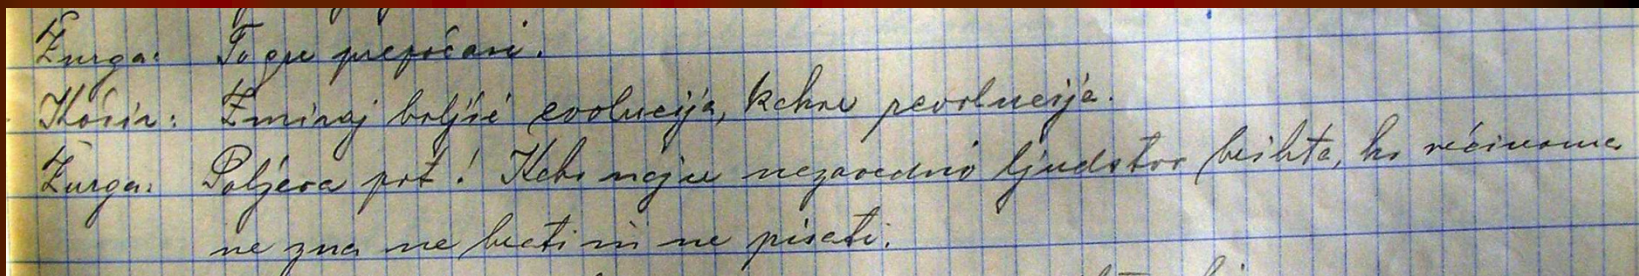 Žurga: To gre prepočasi.
Košir: Zmiraj boljše evolucija, kakor revolucija.
Žurga: Poljeva pot! Kako naj se nezavedno ljudstvo beshta, ko večinoma
ne zna ne brati ni ne pisati.